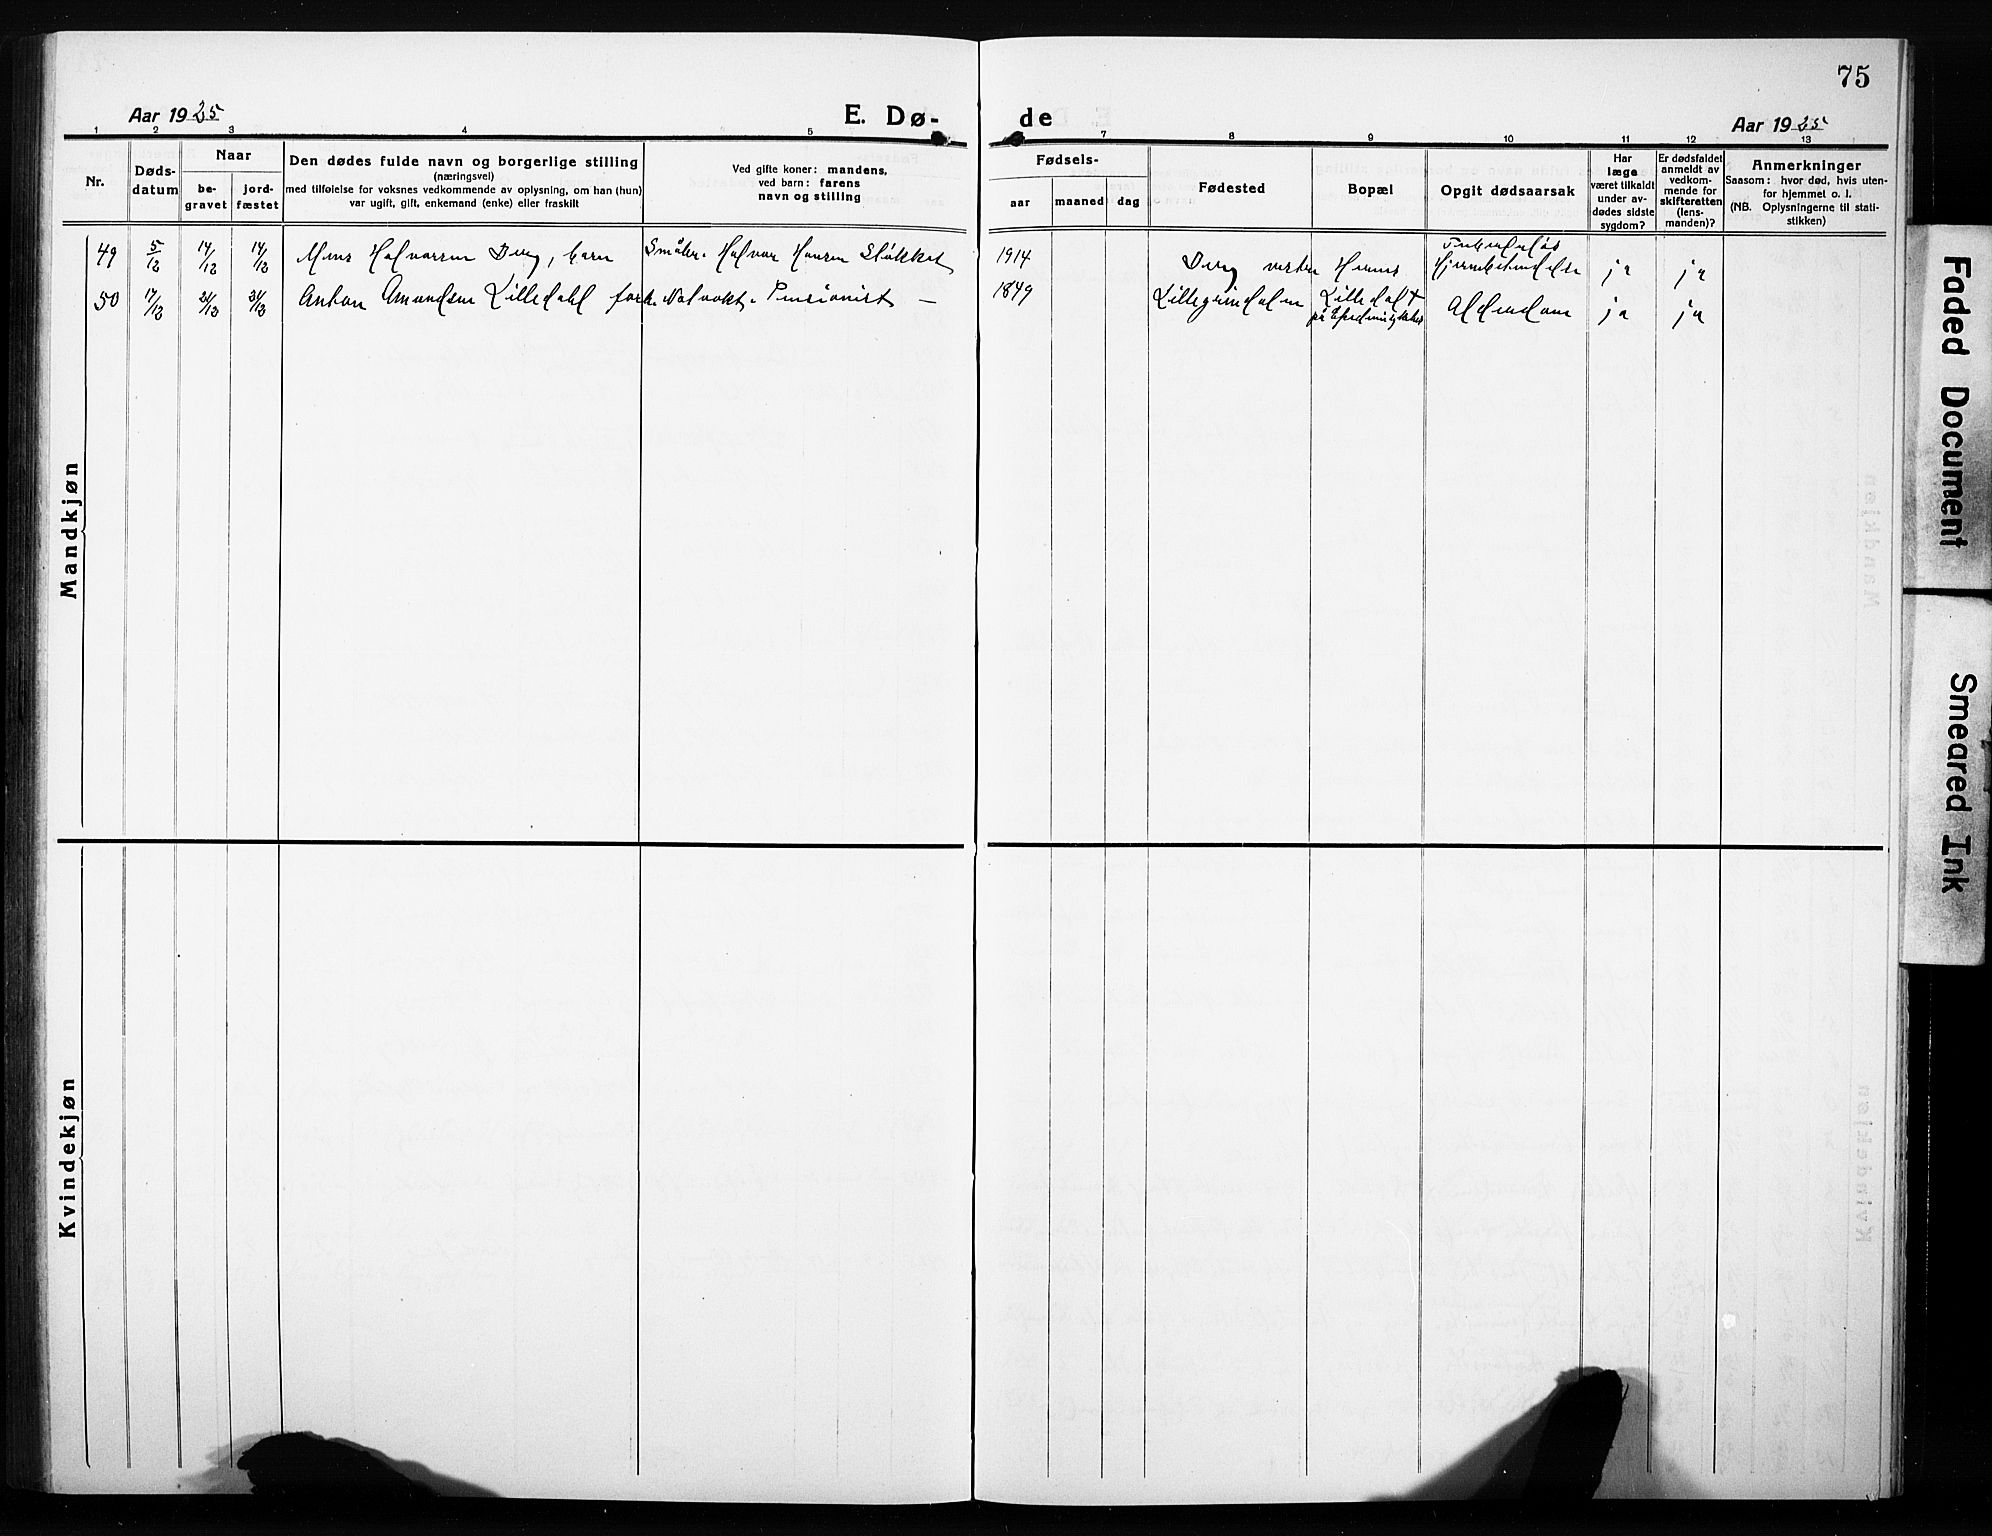 75
Aar 1925
E. Dø-
de
Aar 1925
1 2 3 4 5 7 8 9 10 11 12 13
Nr.
Døds-
datum
Naar
be-
gravet
jord-
fæstet
Den dødes fulde navn og borgerlige stilling
(næringsvei)
med tilføielse for voksnes vedkommende av oplysning, om han (hun)
var ugift, gift, enkemand (enke) eller fraskilt
Ved gifte koner: mandens,
ved barn: farens
navn og stilling
Fødsels-
aar
maaned
dag
Fødested
Bopæl
Opgit dødsaarsak
Har
læge
været tilkaldt
under av-
dødes sidste
sygdom?
Er dødsfaldet
anmeldt av
vedkom-
mende for
skifteretten
(lens-
manden)?
Anmerkninger
Saasom: hvor død, hvis uten-
for hjemmel o. l.
(NB. Oplysningerne til stati-
stikken)
Mandkjøn
49 5/12 14/12 14/12 Halvorsen barn Småbr. Halvor Hansen Stokket 1914 ja ja
50 17/12 21/12 21/12 Anton Amundsen Lilledahl Pensionist — 1849 Lilledal Alderdom ja ja
Kvindekjøn
Faded Document
Smeared Ink